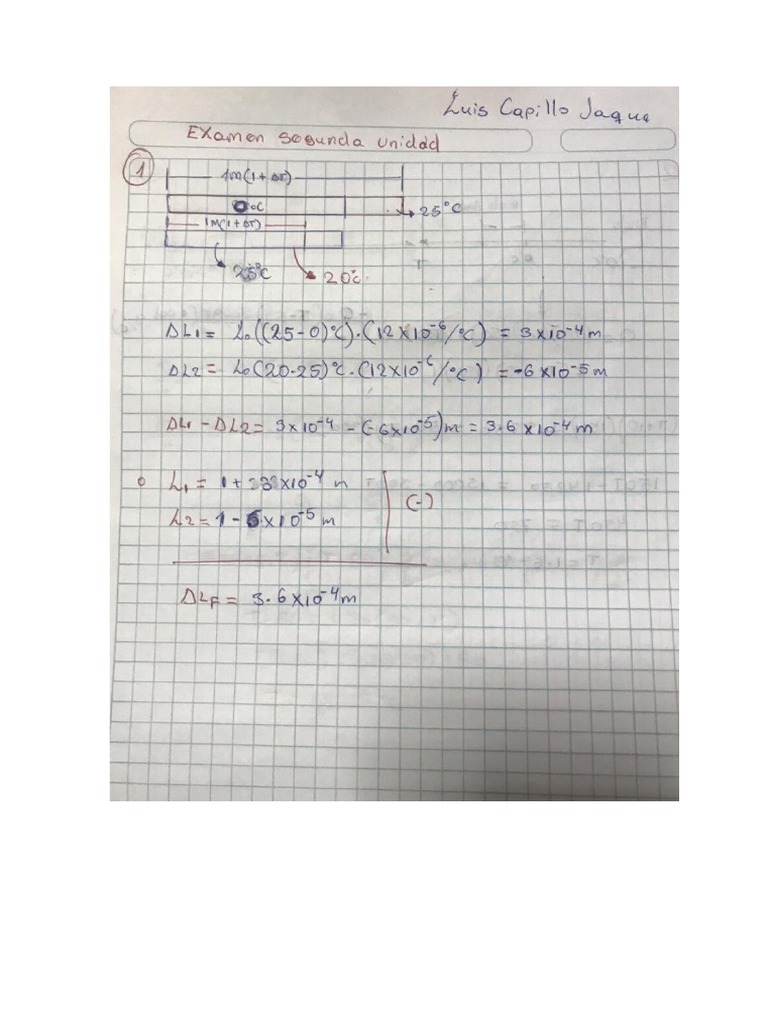 Luis Capillo Jaque
Examen segunda unidad
1
1m(1+ΔT)
0°C
25°C
1m(1+ΔT)
25°C
20°C
ΔL1 = L₀((25-0)°C)·(12×10⁻⁶/°C) = 3×10⁻⁴m
ΔL2 = L₀(20-25)°C·(12×10⁻⁶/°C) = -6×10⁻⁵m
ΔL1 - ΔL2 = 3×10⁻⁴ - (-6×10⁻⁵)m = 3.6×10⁻⁴m
L1 = 1 + 3×10⁻⁴ m
L2 = 1 - 6×10⁻⁵ m
(-)
ΔLF = 3.6×10⁻⁴m